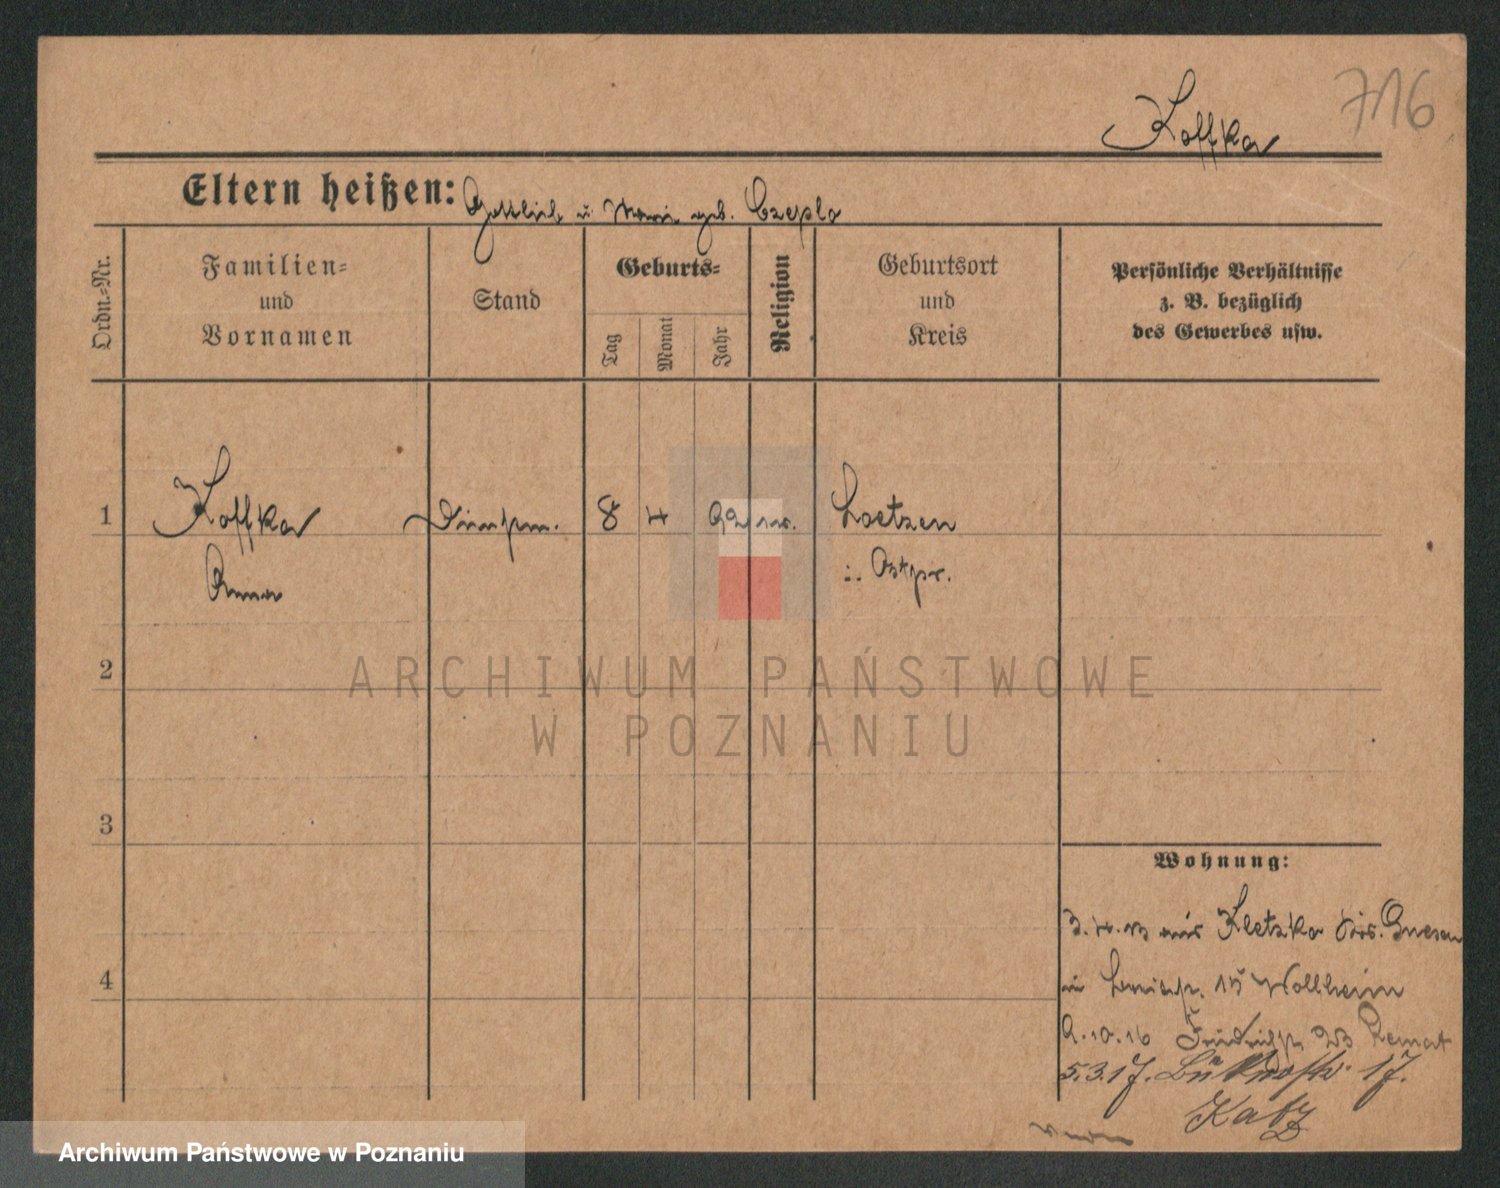 716
Koffka
Eltern heißen: Gottlieb u. Marie geb. Czepla
Ordn.-Nr.
Familien-
und
Vornamen
Stand
Geburts-
Tag
Monat
Jahr
Religion
Geburtsort
und
Kreis
Persönliche Verhältnisse
z. B. bezüglich
des Gewerbes usw.
1 Koffka 8 4 92 Loetzen
Anna i. Ostpr.
2
3
4
Wohnung:
aus Kletzko Krs. Gnesen
15 Wollheim
9.10.16 Friedrichstr. 23
5.3.17. 17.
Katz
ARCHIWUM PAŃSTWOWE
W POZNANIU
Archiwum Państwowe w Poznaniu